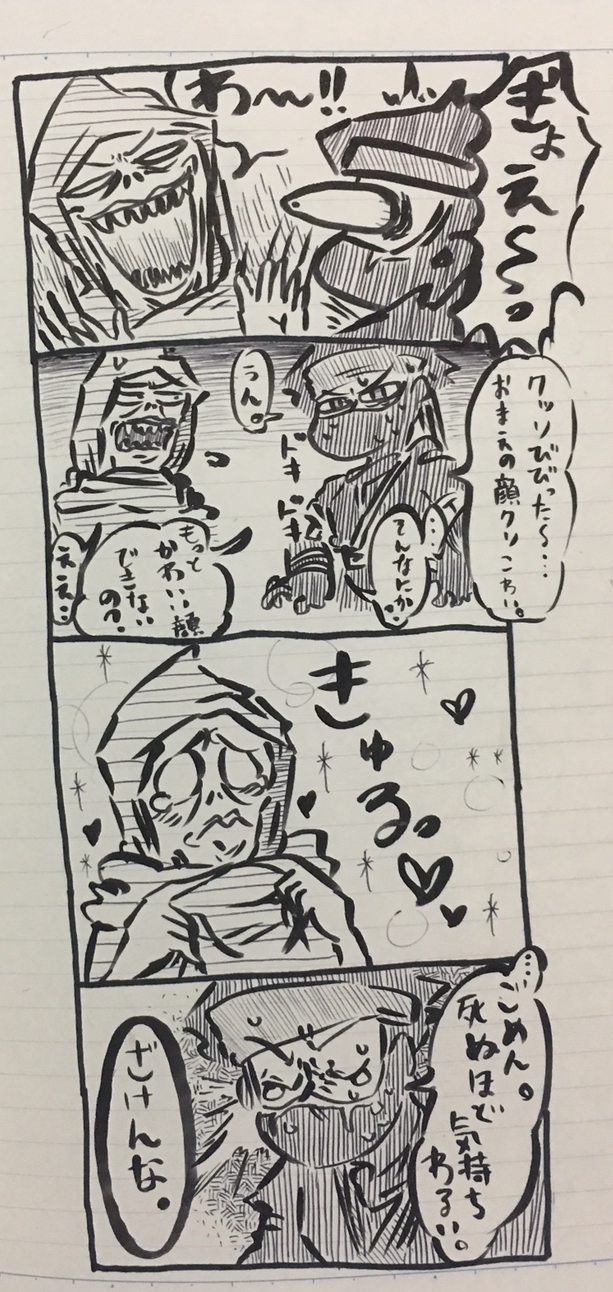 ぎょえ〜っ
わ〜!!
クッソびびった〜…
おまえの顔クソこわい。
うん。
ドキ
ドキ
…
そんなにか。
もっと
かわいい顔
できない
の?
ええ…
きゅるっ♥
…ごめん。
死ぬほど
気持ち
わるい。
ざけんな。